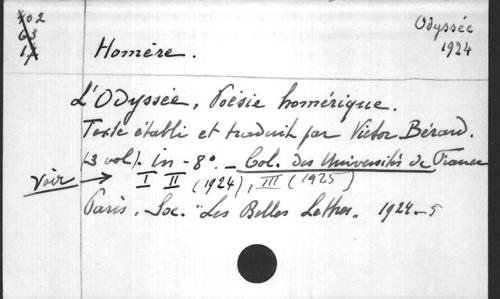 402
63
17
Odyssée
1924
Homère.
L'Odyssée, Poésie homérique.
Texte établi et traduit par Victor Bérard.
(3 vol). in-8°. _ Col. des Universités de France
Voir → I II (1924), III (1925)
Paris. Soc. "Les Belles Lettres. 1924-5